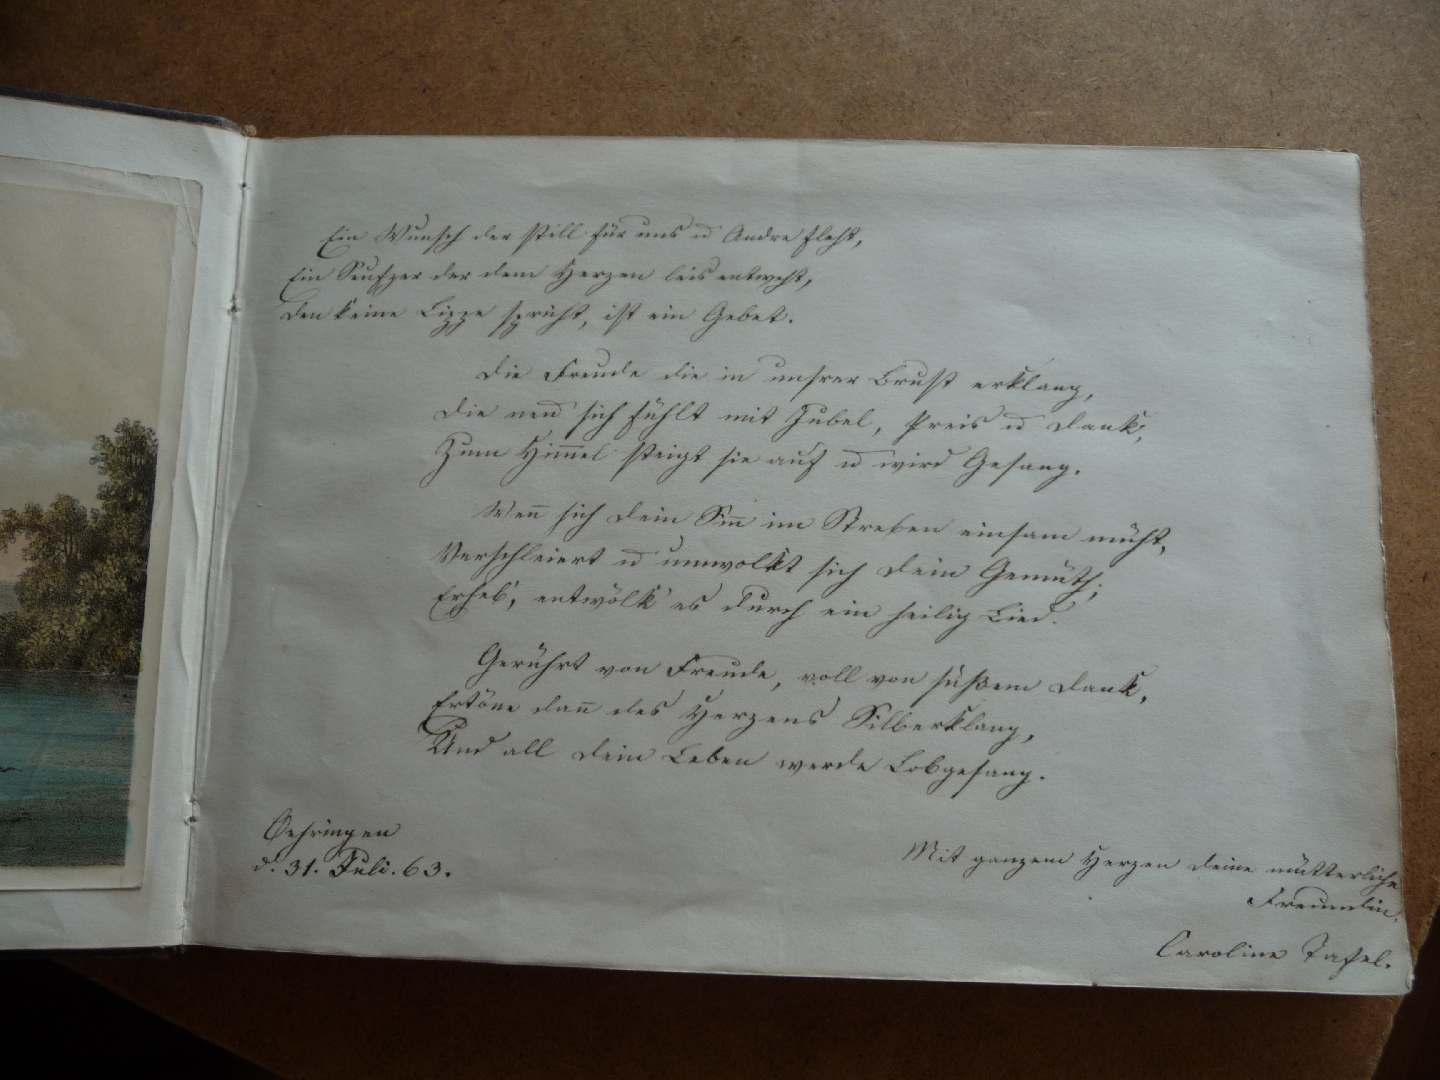 Ein Wunsch der still für uns u Andre fleht,
Ein Seufzer der dem Herzen leis entweht,
Den keine Lippe spricht, ist ein Gebet.
Die Freude die in unsrer Brust erklang,
Die neu sich fühlt mit Jubel, Preis u Dank,
Zum Him̄el steigt sie auf u wird Gesang.
Wen̄ sich dein Sin̄ im Streben einsam müht,
Verschleiert u umwolkt sich dein Gemüth;
Erheb', entwölk' es durch ein heilig Lied.
Gerührt von Freude, voll von süßem Dank,
Ertöne dan̄ des Herzens Silberklang,
Und all dein Leben werde Lobgesang.
Oehringen
d. 31. Juli. 63.
Mit ganzem Herzen deine mütterliche
Freundin,
Caroline Tafel.